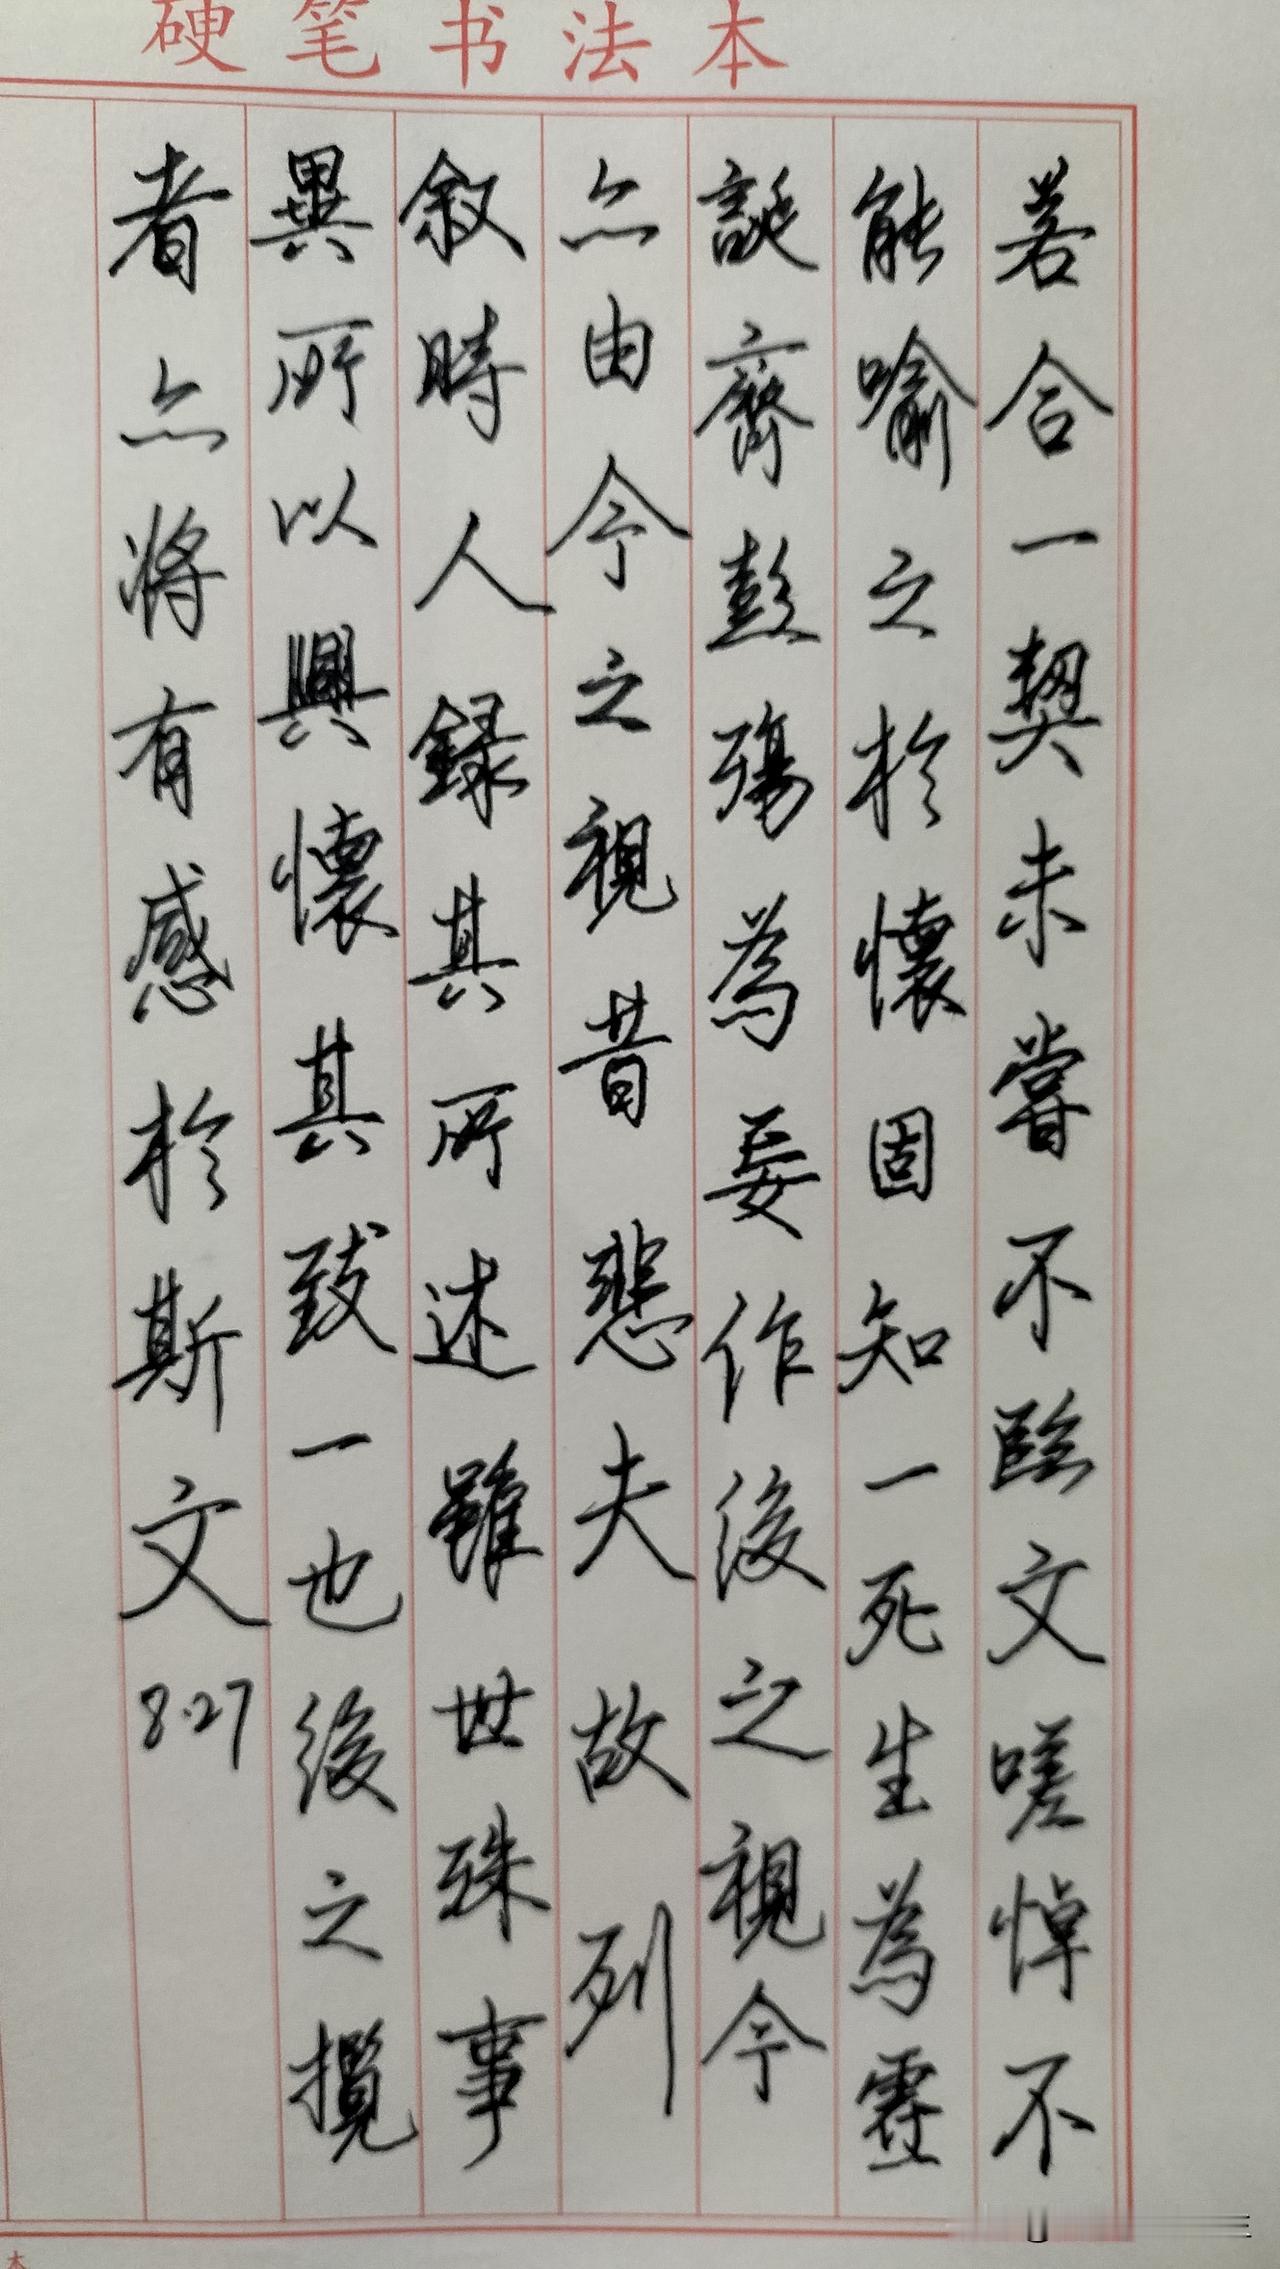 硬笔书法本
若合一契未嘗不臨文嗟悼不
能喻之於懷固知一死生為虛
誕齊彭殤為妄作後之視今
亦由今之視昔悲夫故列
叙時人錄其所述雖世殊事
異所以興懷其致一也後之攬
者亦將有感於斯文
8.27
本